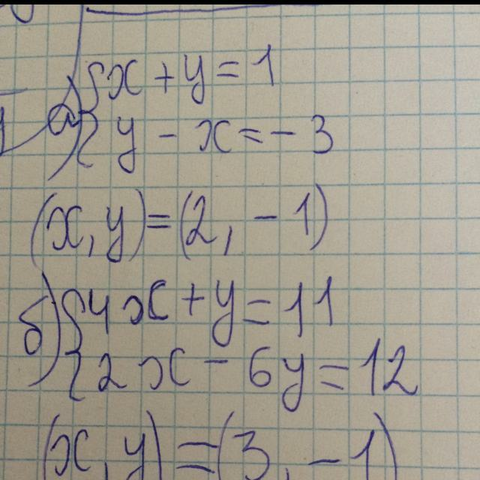 а) { x + y = 1
y - x = - 3
(x, y) = (2, - 1)
б) { 4x + y = 11
2x - 6y = 12
(x, y) = (3, - 1)